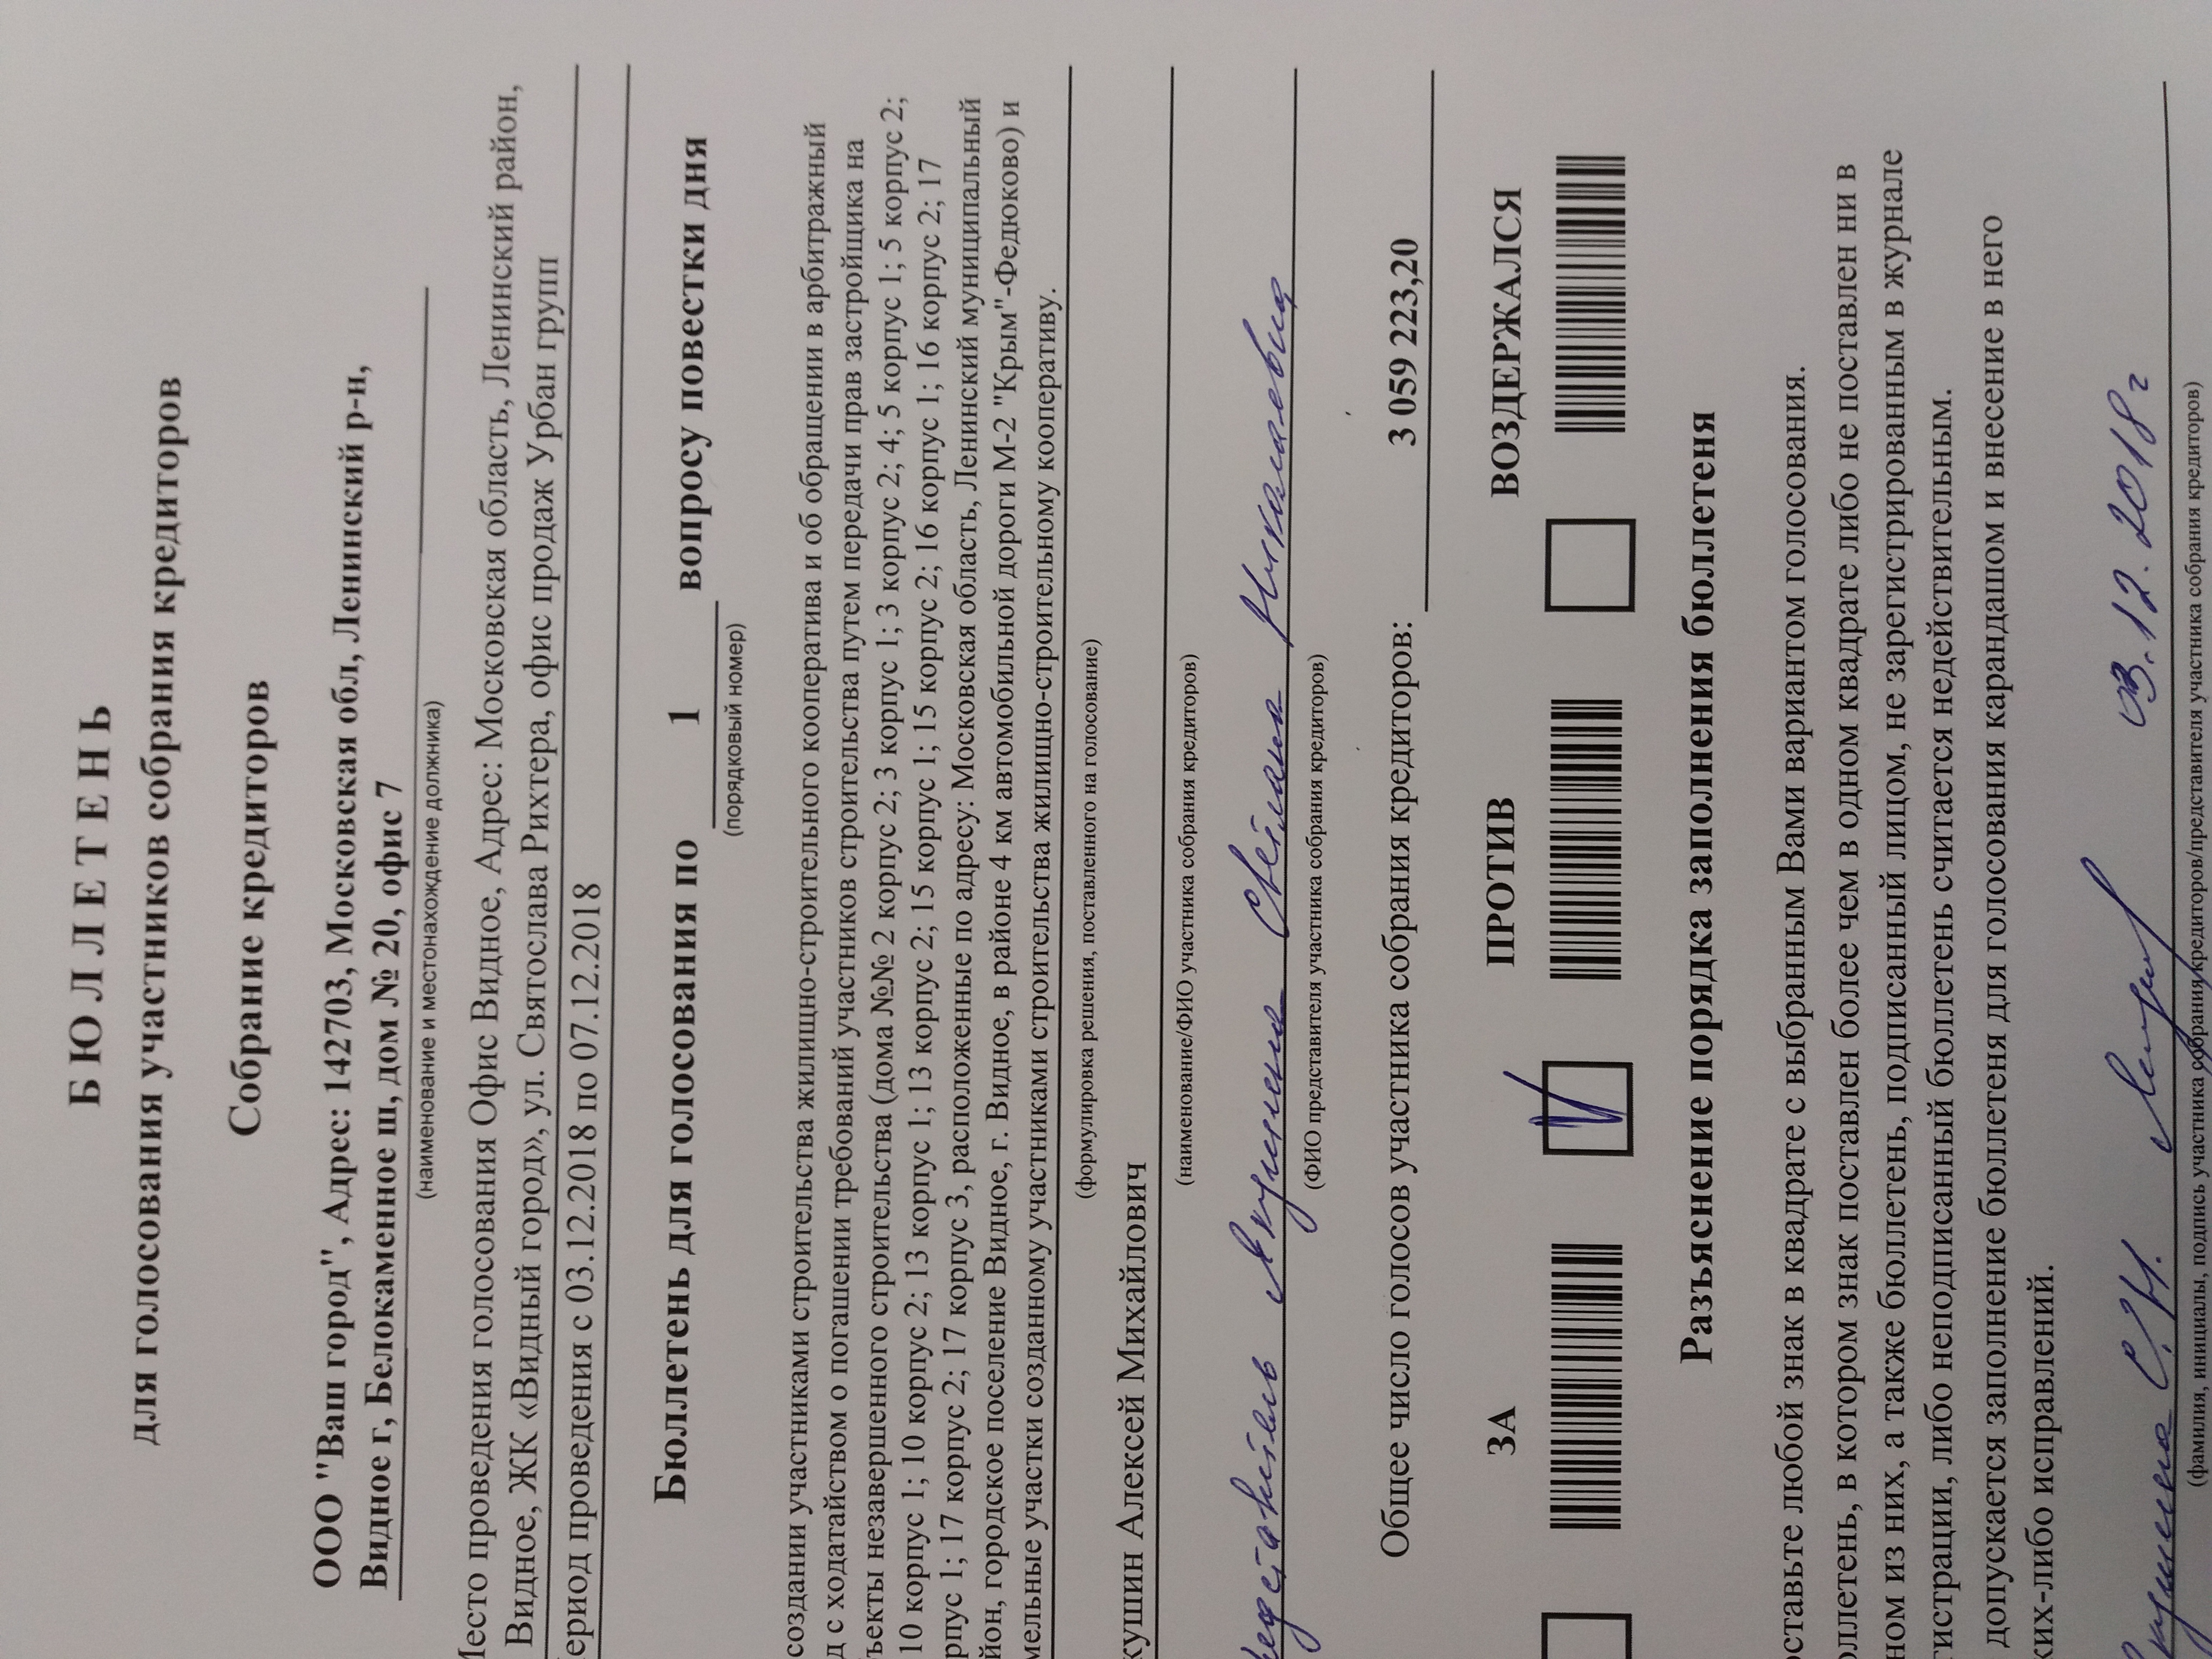 БЮЛЛЕТЕНЬ
для голосования участников собрания кредиторов
Собрание кредиторов
ООО "Ваш город", Адрес: 142703, Московская обл, Ленинский р-н,
Видное г, Белокаменное ш, дом № 20, офис 7
(наименование и местонахождение должника)
Место проведения голосования Офис Видное, Адрес: Московская область, Ленинский район,
Видное, ЖК «Видный город», ул. Святослава Рихтера, офис продаж Урбан групп
ериод проведения с 03.12.2018 по 07.12.2018
Бюллетень для голосования по 1 вопросу повестки дня
(порядковый номер)
создании участниками строительства жилищно-строительного кооператива и об обращении в арбитражный
д с ходатайством о погашении требований участников строительства путем передачи прав застройщика на
бъекты незавершенного строительства (дома №№ 2 корпус 2; 3 корпус 1; 3 корпус 2; 4; 5 корпус 1; 5 корпус 2;
10 корпус 1; 10 корпус 2; 13 корпус 1; 13 корпус 2; 15 корпус 1; 15 корпус 2; 16 корпус 1; 16 корпус 2; 17
рпус 1; 17 корпус 2; 17 корпус 3, расположенные по адресу: Московская область, Ленинский муниципальный
йон, городское поселение Видное, г. Видное, в районе 4 км автомобильной дороги М-2 "Крым"-Федюково) и
мельные участки созданному участниками строительства жилищно-строительному кооперативу.
(формулировка решения, поставленного на голосование)
кушин Алексей Михайлович
(наименование/ФИО участника собрания кредиторов)
редставитель Якушина Светлана Николаевна
(ФИО представителя участника собрания кредиторов)
Общее число голосов участника собрания кредиторов: 3 059 223,20
ЗА ПРОТИВ ВОЗДЕРЖАЛСЯ
Разъяснение порядка заполнения бюллетеня
оставьте любой знак в квадрате с выбранным Вами вариантом голосования.
оллетень, в котором знак поставлен более чем в одном квадрате либо не поставлен ни в
ном из них, а также бюллетень, подписанный лицом, не зарегистрированным в журнале
гистрации, либо неподписанный бюллетень считается недействительным.
допускается заполнение бюллетеня для голосования карандашом и внесение в него
ких-либо исправлений.
Якушина С.Н. 03.12.2018г
(фамилия, инициалы, подпись участника собрания кредиторов/представителя участника собрания кредиторов)